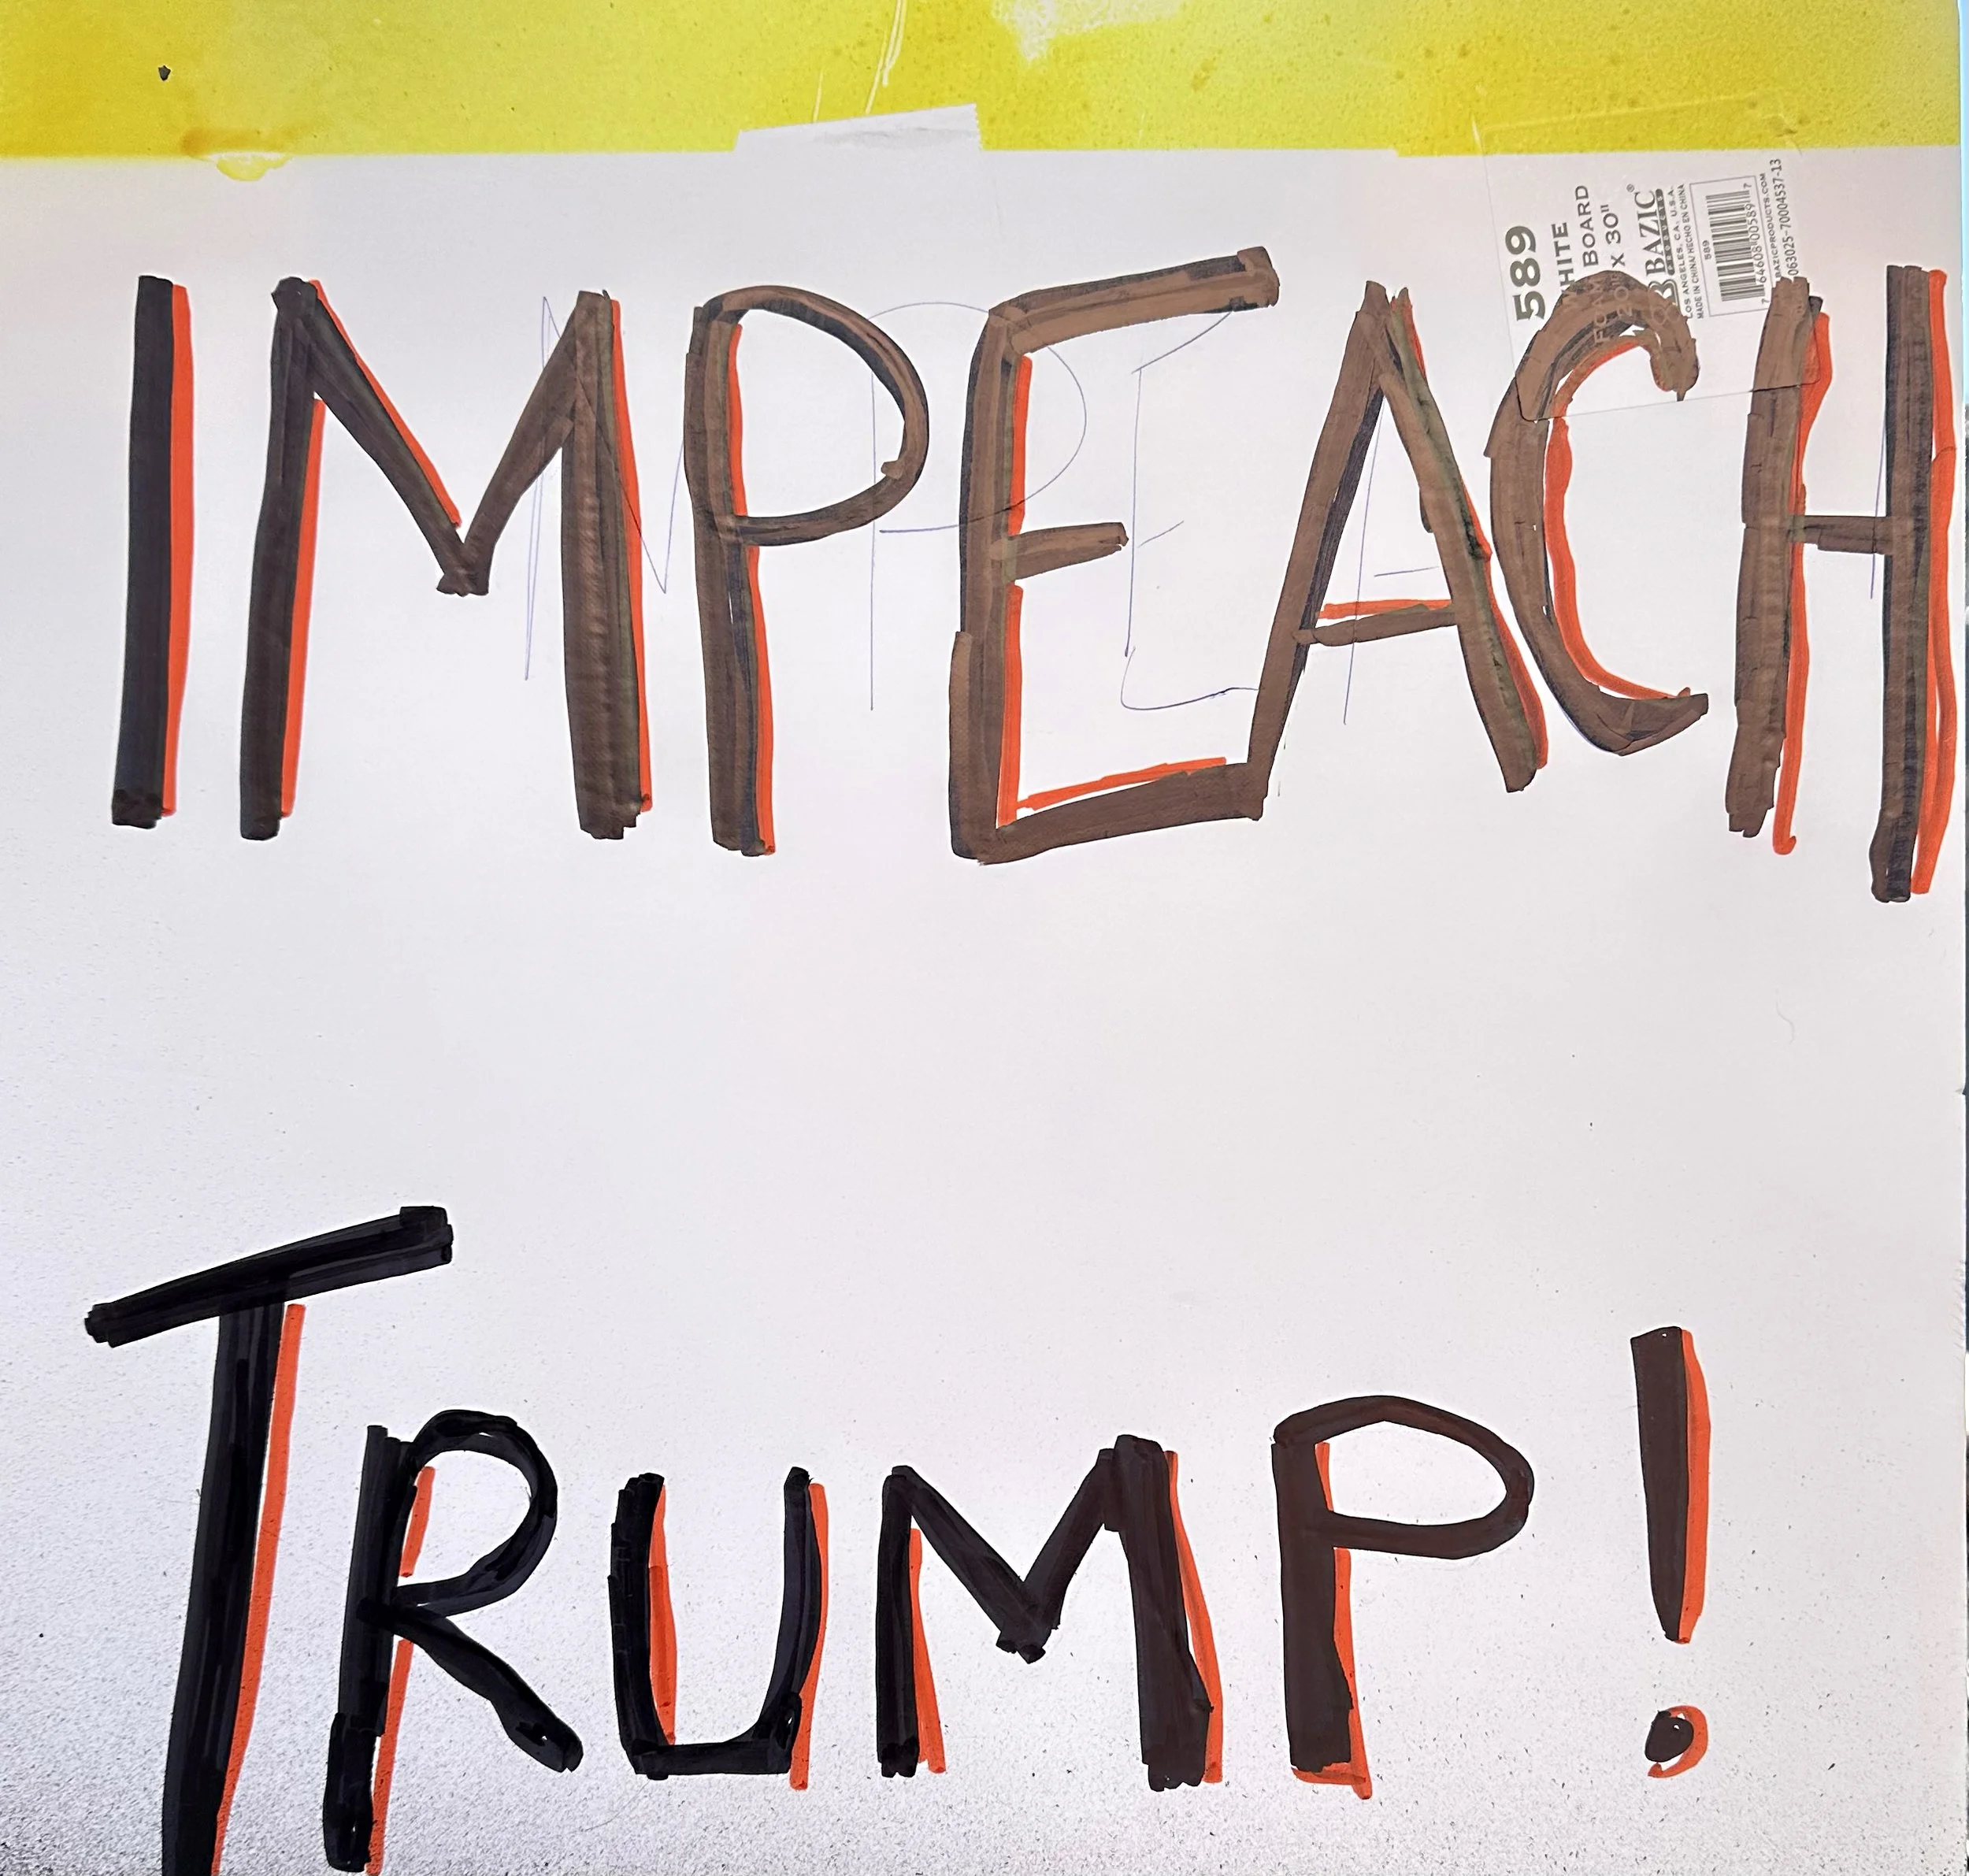 IMPEACH
TRUMP!
589
WHITE
FOAM BOARD
20" X 30"
BAZIC®
PRODUCTS
LOS ANGELES, CA, U.S.A.
MADE IN CHINA/HECHO EN CHINA
589
7 64608 00589 7
BAZICPRODUCTS.COM
063025-70004537-13